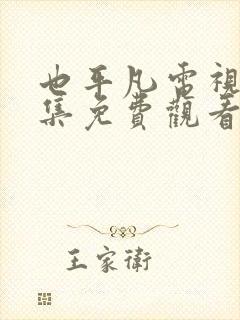 也平凡電視
集免費觀看
王家衛